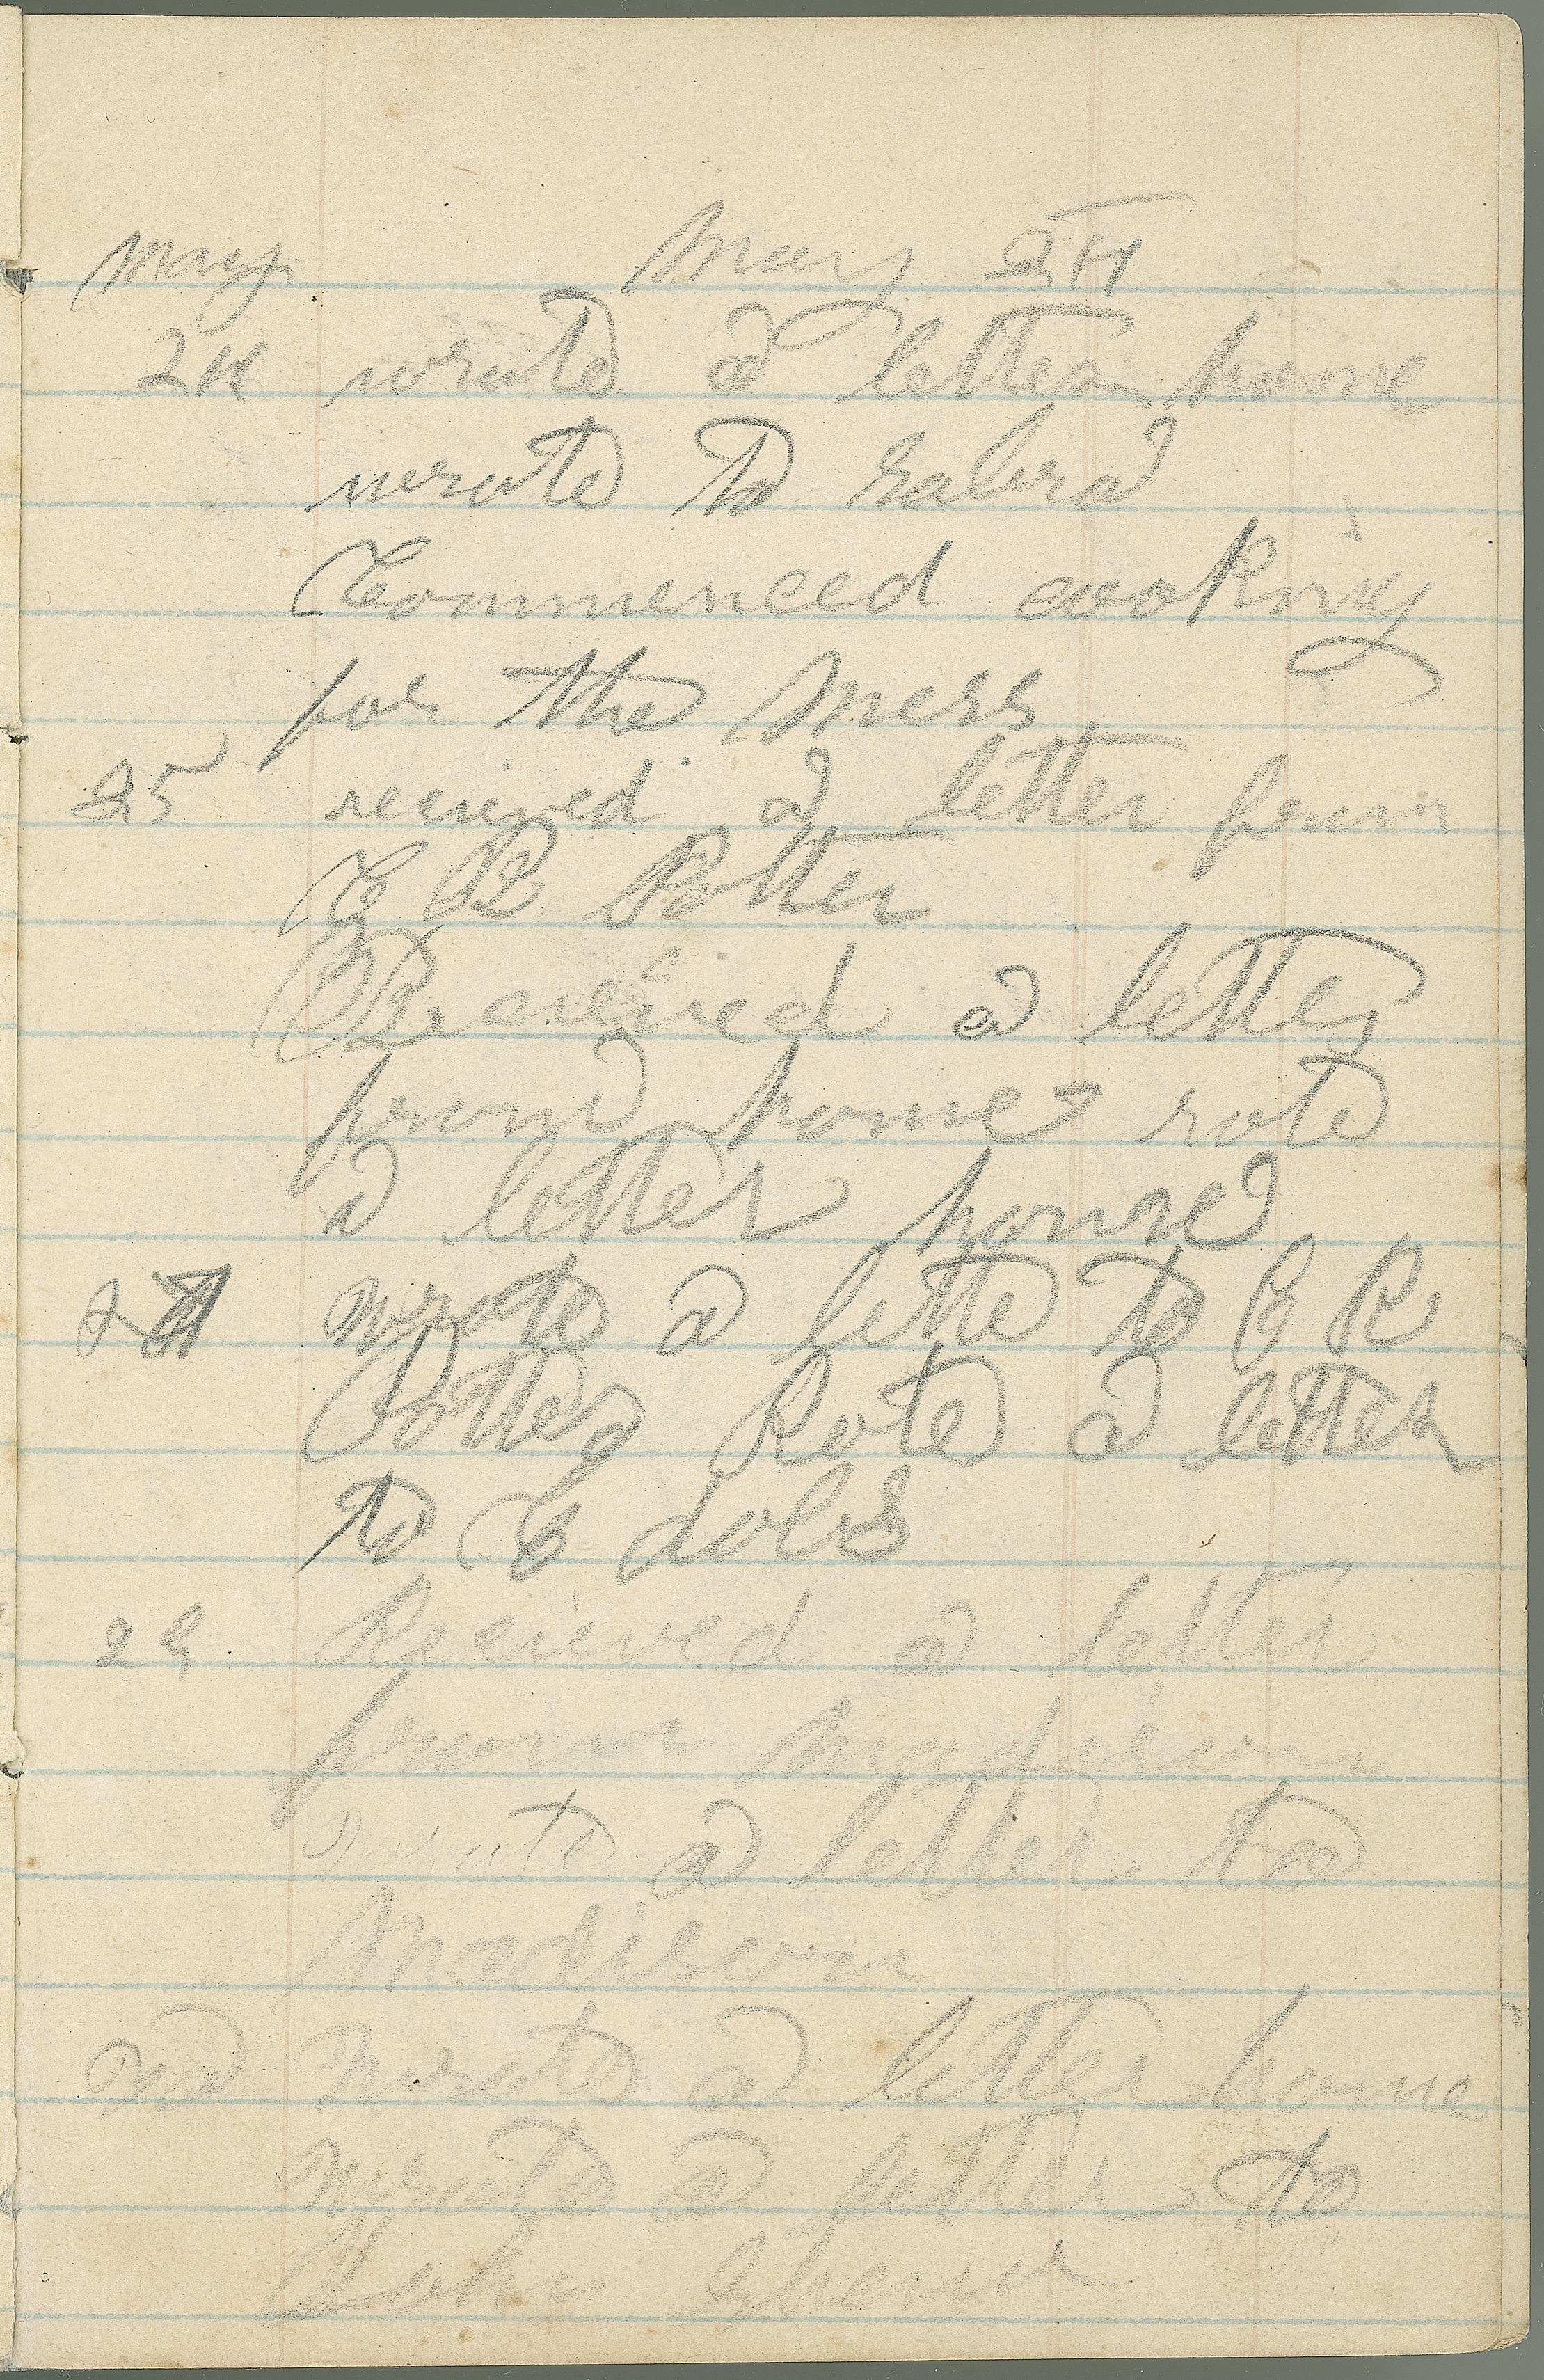 May May 24
24 wrote a letter home
wrote to
Commenced cooking
for the mess
25 recieved a letter from
C B Potter
Recieved a letter
from home rote
a letter home
wrote a lette to C B
Potter Rote a letter
to C
28 Recieved a letter
from Madison
wrote a letter to
Madison
wrote a letter home
wrote a letter to
John